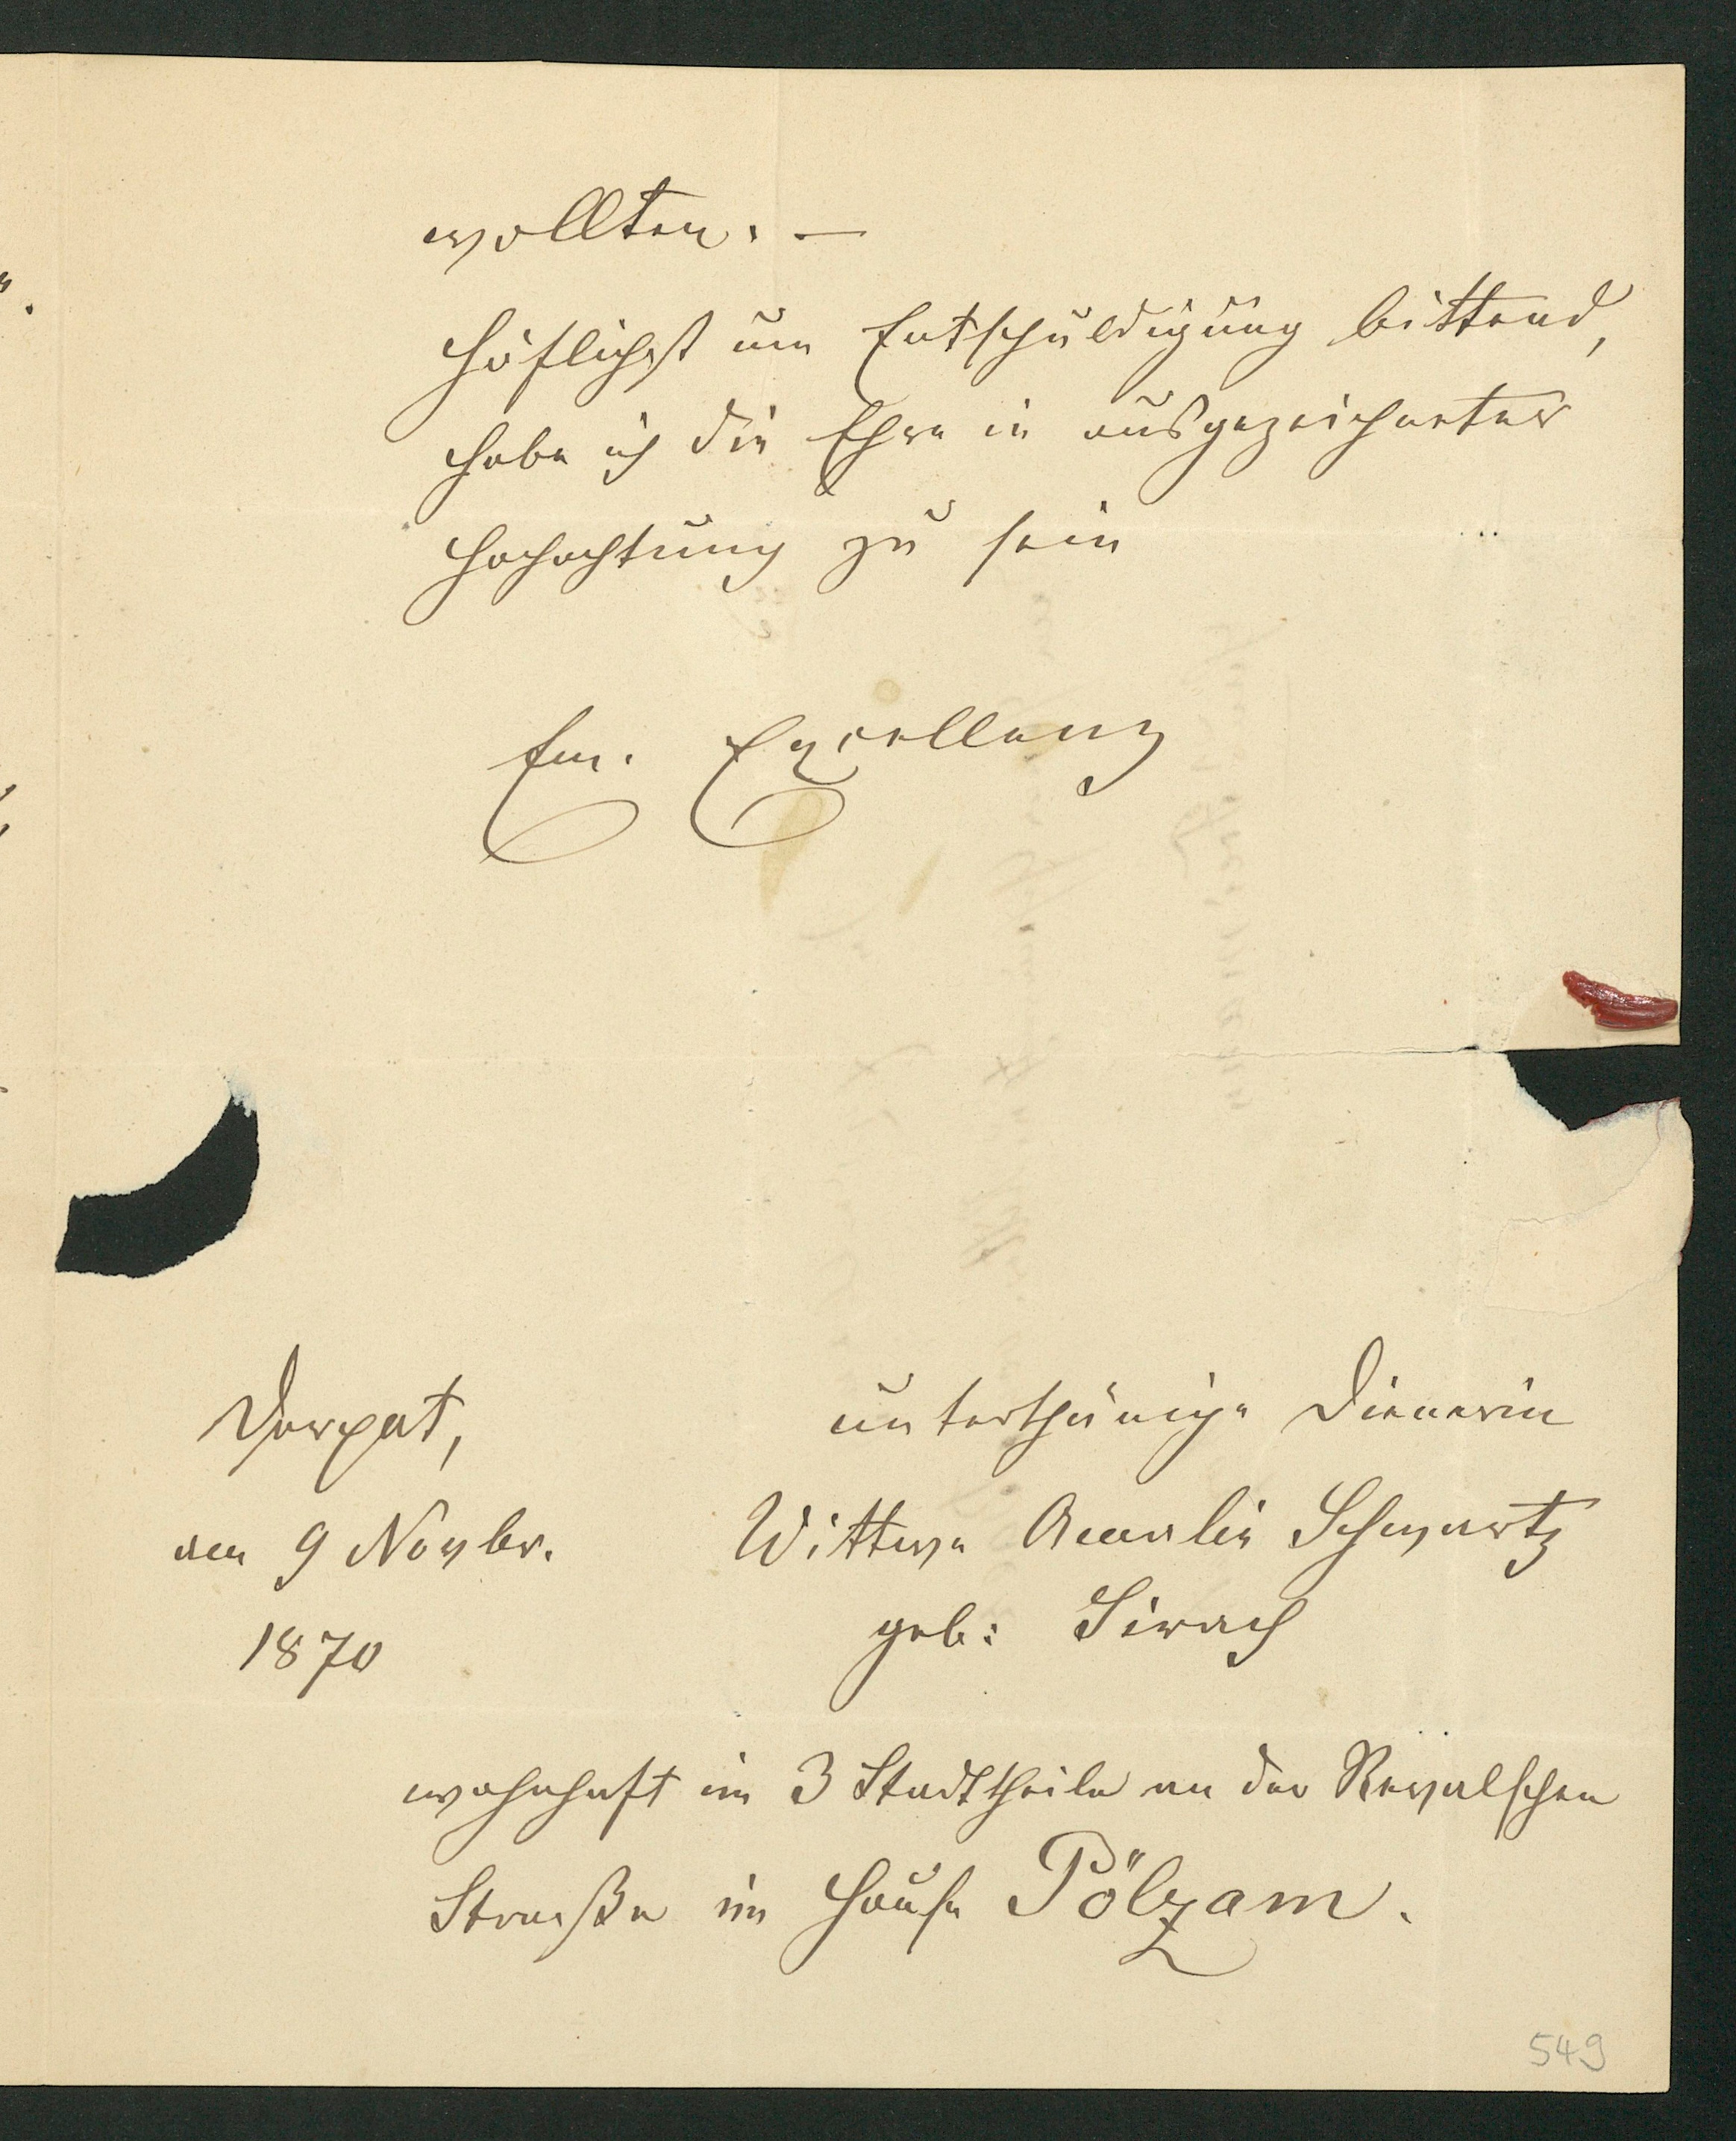 wollten. —
Höflichst um Entschuldigung bittend,
habe ich die Ehre in ausgezeichneter
Hochachtung zu sein
Ew. Excellenz
unterthänige Dienerin
Wittwe Amalie Schwartz
geb: Sirach
Dorpat,
am 9 Novbr.
1870
wohnhaft im 3 Stadttheile an der Revalschen
Straße im Hause Pölzam.
549